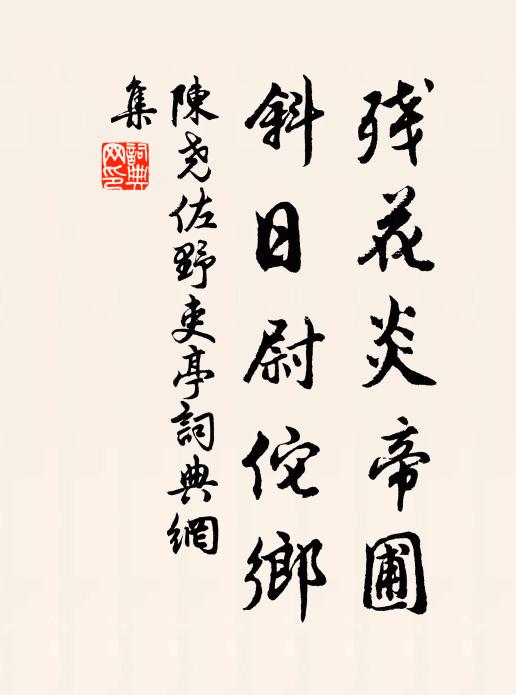 残花炎帝圃
斜日尉佗鄉
陳堯佐野吏亭詞典網
集
詞典
网印